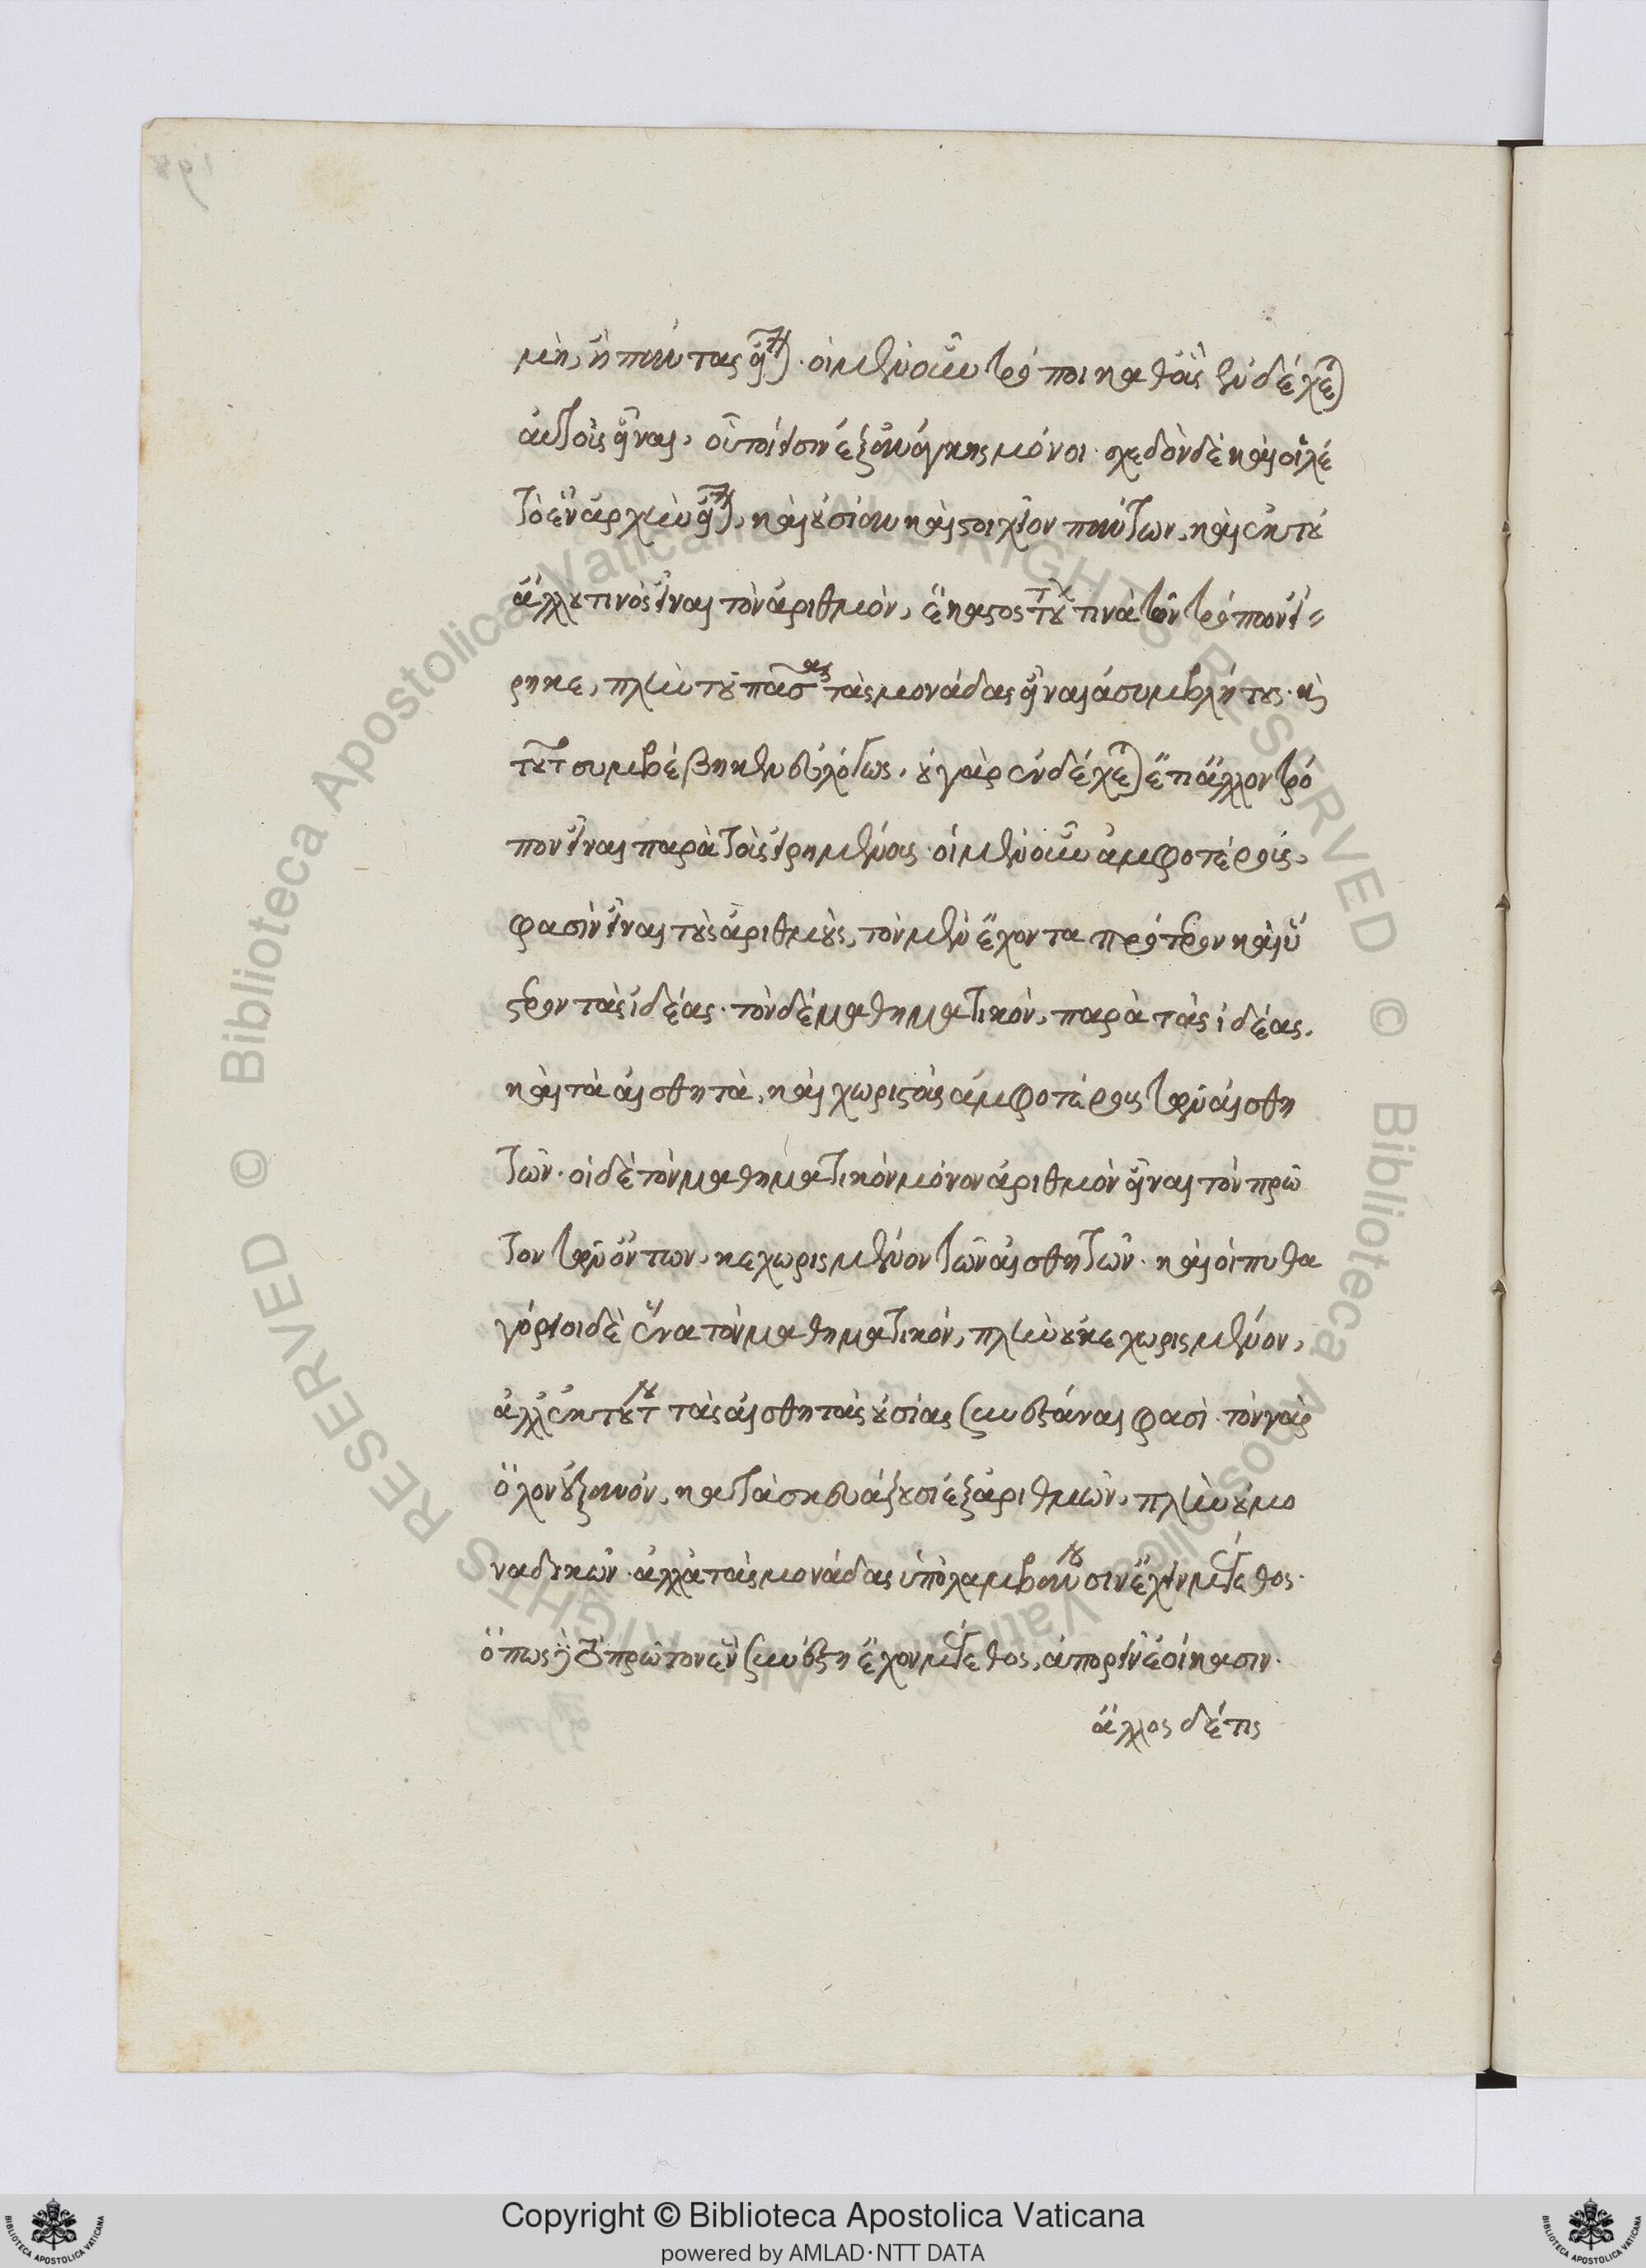 μὴ, ἢ πάντας εἶναι· οἱ μὲν οὖν τρόποι καθ' οὓς ἐνδέχεται
αὐτοὺς εἶναι, οὗτοί εἰσιν ἐξ ἀνάγκης μόνοι· σχεδὸν δὲ καὶ οἱ λέ
τὸ ἓν ἀρχὴν εἶναι, καὶ οὐσίαν καὶ στοιχεῖον πάντων, καὶ ἐκ τού
ἄλλου τινὸς εἶναι τὸν ἀριθμὸν, ἕκαστος τούτων τινὰ τῶν τρόπων εἴ-
ρηκε, πλὴν τοῦ πάσας τὰς μονάδας εἶναι ἀσυμβλήτους· καὶ
τοῦτο συμβέβηκεν εὐλόγως, οὐ γὰρ ἐνδέχεται ἔτι ἄλλον τρό
πον εἶναι παρὰ τοὺς εἰρημένους· οἱ μὲν οὖν ἀμφοτέρους,
φασὶν εἶναι τοὺς ἀριθμοὺς, τὸν μὲν ἔχοντα πρότερον καὶ ὕ
στερον τὰς ἰδέας· τὸν δὲ μαθηματικὸν, παρὰ τὰς ἰδέας,
καὶ τὰ αἰσθητὰ, καὶ χωριστοὺς ἀμφοτέρους τῶν αἰσθη
τῶν· οἱ δὲ τὸν μαθηματικὸν μόνον ἀριθμὸν εἶναι τὸν πρῶ
τον τῶν ὄντων, κεχωρισμένον τῶν αἰσθητῶν· καὶ οἱ πυθα
γόρειοι δὲ ἕνα τὸν μαθηματικόν, πλὴν οὐ κεχωρισμένον,
ἀλλ' ἐκ τούτου τὰς αἰσθητὰς οὐσίας συνεστάναι φασὶ· τὸν γὰρ
ὅλον οὐρανόν, κατασκευάζουσι ἐξ ἀριθμῶν, πλὴν οὐ μο
ναδικῶν· ἀλλὰ τὰς μονάδας ὑπολαμβάνουσιν ἔχειν μέγεθος·
ὅπως δὲ τὸ πρῶτον ἓν συνέστη ἔχον μέγεθος, ἀπορεῖν ἐοίκασιν·
ἄλλος δέ τις
Copyright © Biblioteca Apostolica Vaticana
powered by AMLAD·NTT DATA